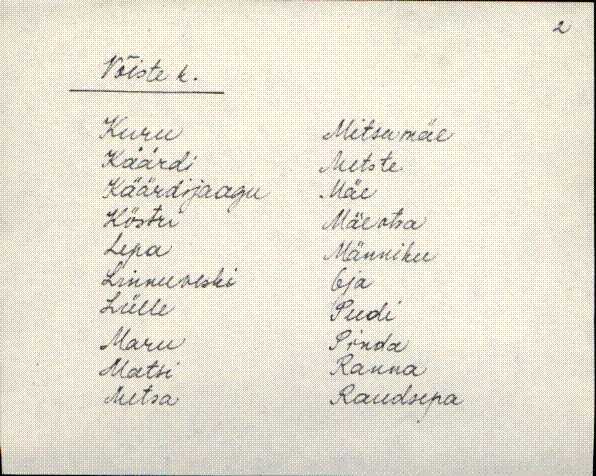 2
Võiste k.
Kuru
Käärdi
Käärdijaagu
Köstri
Lepa
Linnuveski
Lülle
Maru
Matsi
Metsa
Mitsumäe
Metste
Mäe
Mäeotsa
Männiku
Oja
Pudi
Pinda
Ranna
Raudsepa